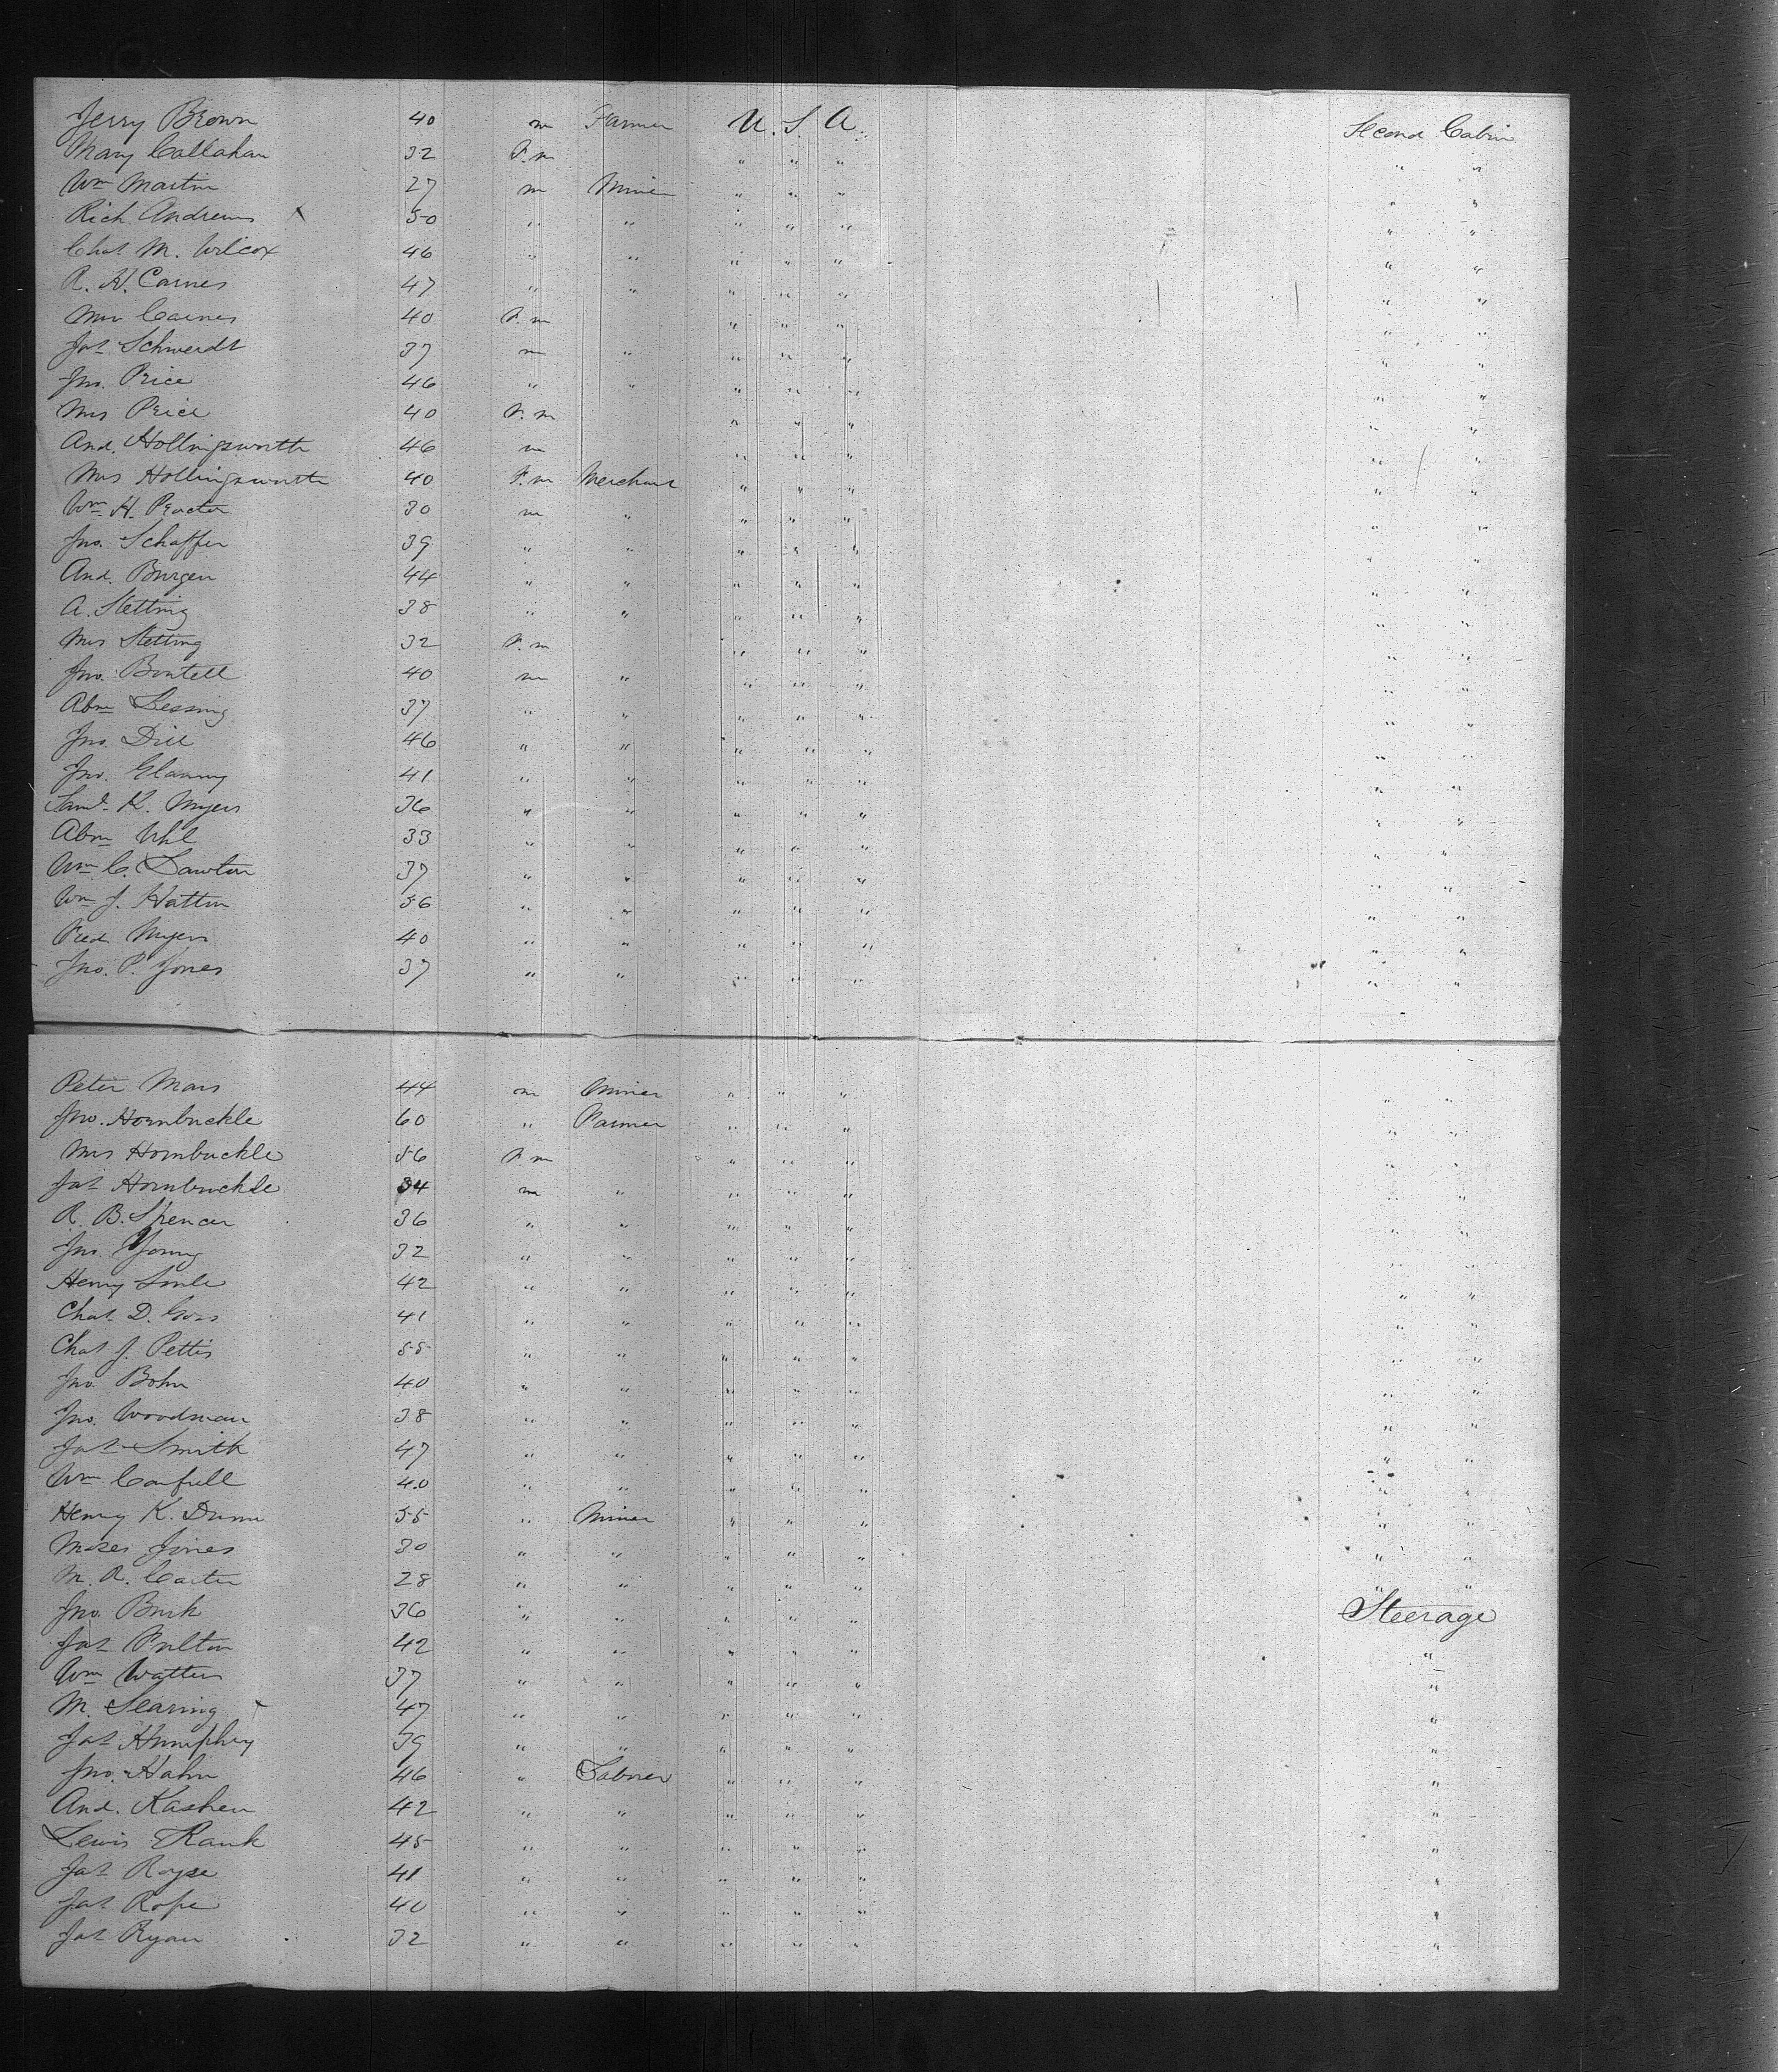 Jerry Brown 40 m Farmer U. S. A. Second Cabin
Mary Callahan 32 F.m " " " " "
Wm Martin 27 m Miner " " " " "
Rich. Andrews 50 " " " " " " "
Chas M. Wilcox 46 " " " " " " "
R. H. Carnes 47 " " " " " " "
Mrs Carnes 40 F.m " " " " "
Jas Schwerdt 37 m " " " " " "
Jno. Price 46 " " " " " " "
Mrs Price 40 F.m " " " " "
And. Hollingsworth 46 m " " " " "
Mrs Hollingsworth 40 F.m Merchant " " " " "
Wm H. Proctor 30 m " " " " " "
Jno. Schaffer 39 " " " " " " "
And. Burgen 44 " " " " " " "
A. Stetting 38 " " " " " " "
Mrs Stetting 32 F.m " " " " "
Jno. Bontell 40 m " " " " " "
Abm Lessing 37 " " " " " " "
Jno. Dill 46 " " " " " " "
Jno. Glanny 41 " " " " " " "
Saml. K. Myers 36 " " " " " " "
Abm Uhl 33 " " " " " " "
Wm C. Lawton 37 " " " " " " "
Wm J. Hatton 56 " " " " " " "
Fred. Myers 40 " " " " " " "
Jno. P. Jones 37 " " " " " " "
Peter Mars 44 m Miner " " " " "
Jno. Hornbuckle 60 " Farmer " " " " "
Mrs Hornbuckle 56 F.m " " " " "
Jas Hornbuckle 34 m " " " " " "
R. B. Spencer 36 " " " " " " "
Jno. Young 32 " " " " " " "
Henry Smle 42 " " " " " " "
Chas. D. Goss 41 " " " " " " "
Chas J. Pettis 55 " " " " " " "
Jno. Bohn 40 " " " " " " "
Jno. Woodman 38 " " " " " " "
Jas Smith 47 " " " " " " "
Wm Canfull 40 " " " " " " "
Henry K. Dunn 55 " Miner " " " " "
Moses Jones 30 " " " " " " "
M. R. Carter 28 " " " " " " "
Jno. Burk 36 " " " " " Steerage
Jas Fulton 42 " " " " " "
Wm Watters 37 " " " " " "
M. Searing 47 " " " " " "
Jas Humphey 39 " " " " " "
Jno. Hahn 46 " Laborer " " " "
And. Kashen 42 " " " " " "
Lewis Rank 45 " " " " " "
Jas Royse 41 " " " " " "
Jas Rope 40 " " " " " "
Jas Ryan 32 " " " " " "